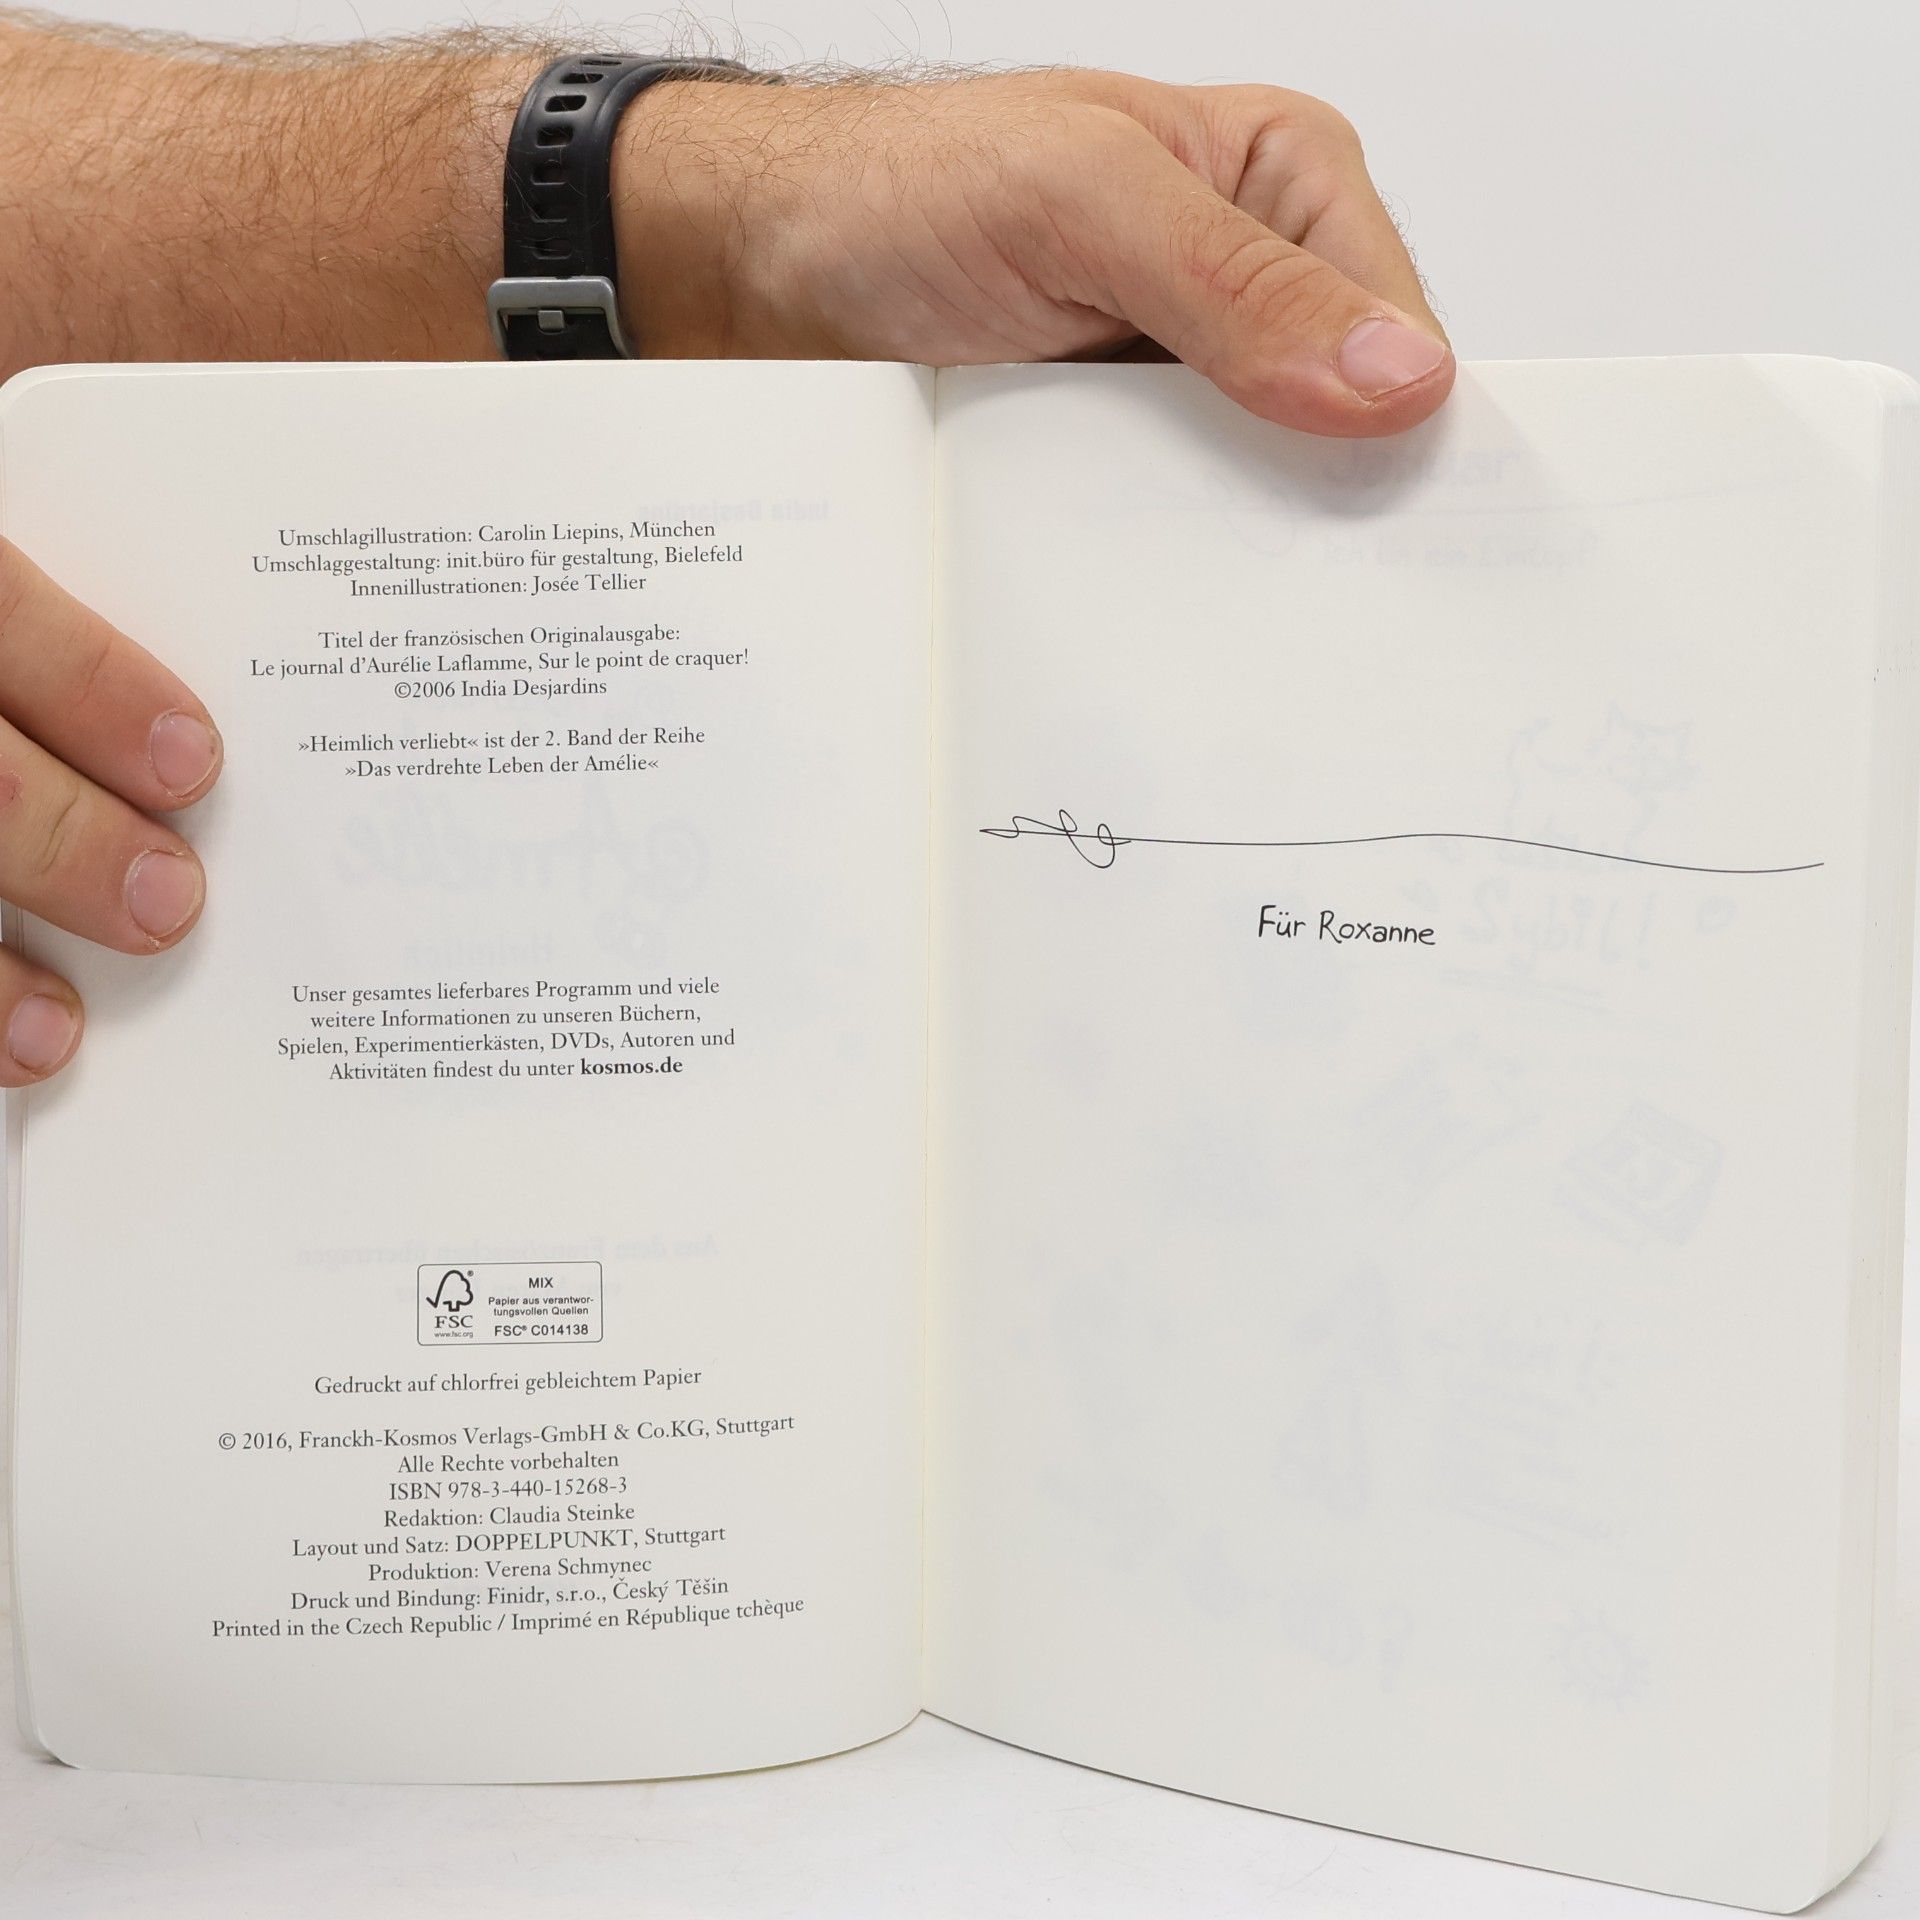 Umschlagillustration: Carolin Liepins, München
Umschlaggestaltung: init.büro für gestaltung, Bielefeld
Innenillustrationen: Josée Tellier
Titel der französischen Originalausgabe:
Le journal d'Aurélie Laflamme, Sur le point de craquer!
©2006 India Desjardins
»Heimlich verliebt« ist der 2. Band der Reihe
»Das verdrehte Leben der Amélie«
Unser gesamtes lieferbares Programm und viele
weitere Informationen zu unseren Büchern,
Spielen, Experimentierkästen, DVDs, Autoren und
Aktivitäten findest du unter kosmos.de
FSC
www.fsc.org
MIX
Papier aus verantwor-
tungsvollen Quellen
FSC® C014138
Gedruckt auf chlorfrei gebleichtem Papier
© 2016, Franckh-Kosmos Verlags-GmbH & Co.KG, Stuttgart
Alle Rechte vorbehalten
ISBN 978-3-440-15268-3
Redaktion: Claudia Steinke
Layout und Satz: DOPPELPUNKT, Stuttgart
Produktion: Verena Schmynec
Druck und Bindung: Finidr, s.r.o., Český Těšín
Printed in the Czech Republic / Imprimé en République tchèque
Für Roxanne